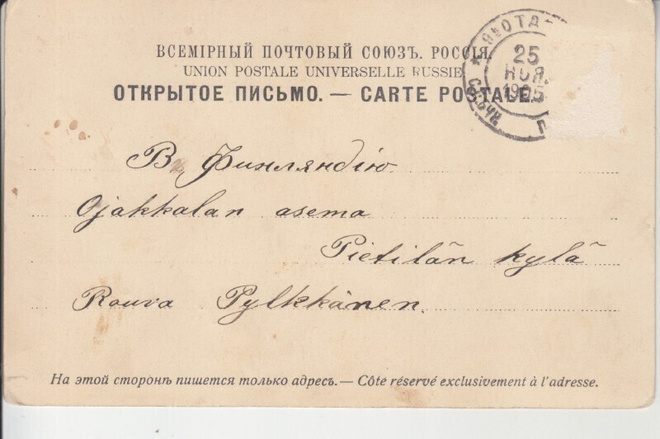 ВСЕМІРНЫЙ ПОЧТОВЫЙ СОЮЗЪ. РОССІЯ.
UNION POSTALE UNIVERSELLE RUSSIE
ОТКРЫТОЕ ПИСЬМО. — CARTE POSTALE.
25
НОЯ.
1905
Въ Финляндію.
Ojakkalan asema
Pietilän kylä
Rouva Pylkkänen.
На этой сторонѣ пишется только адресъ. — Côte réservé exclusivement à l'adresse.